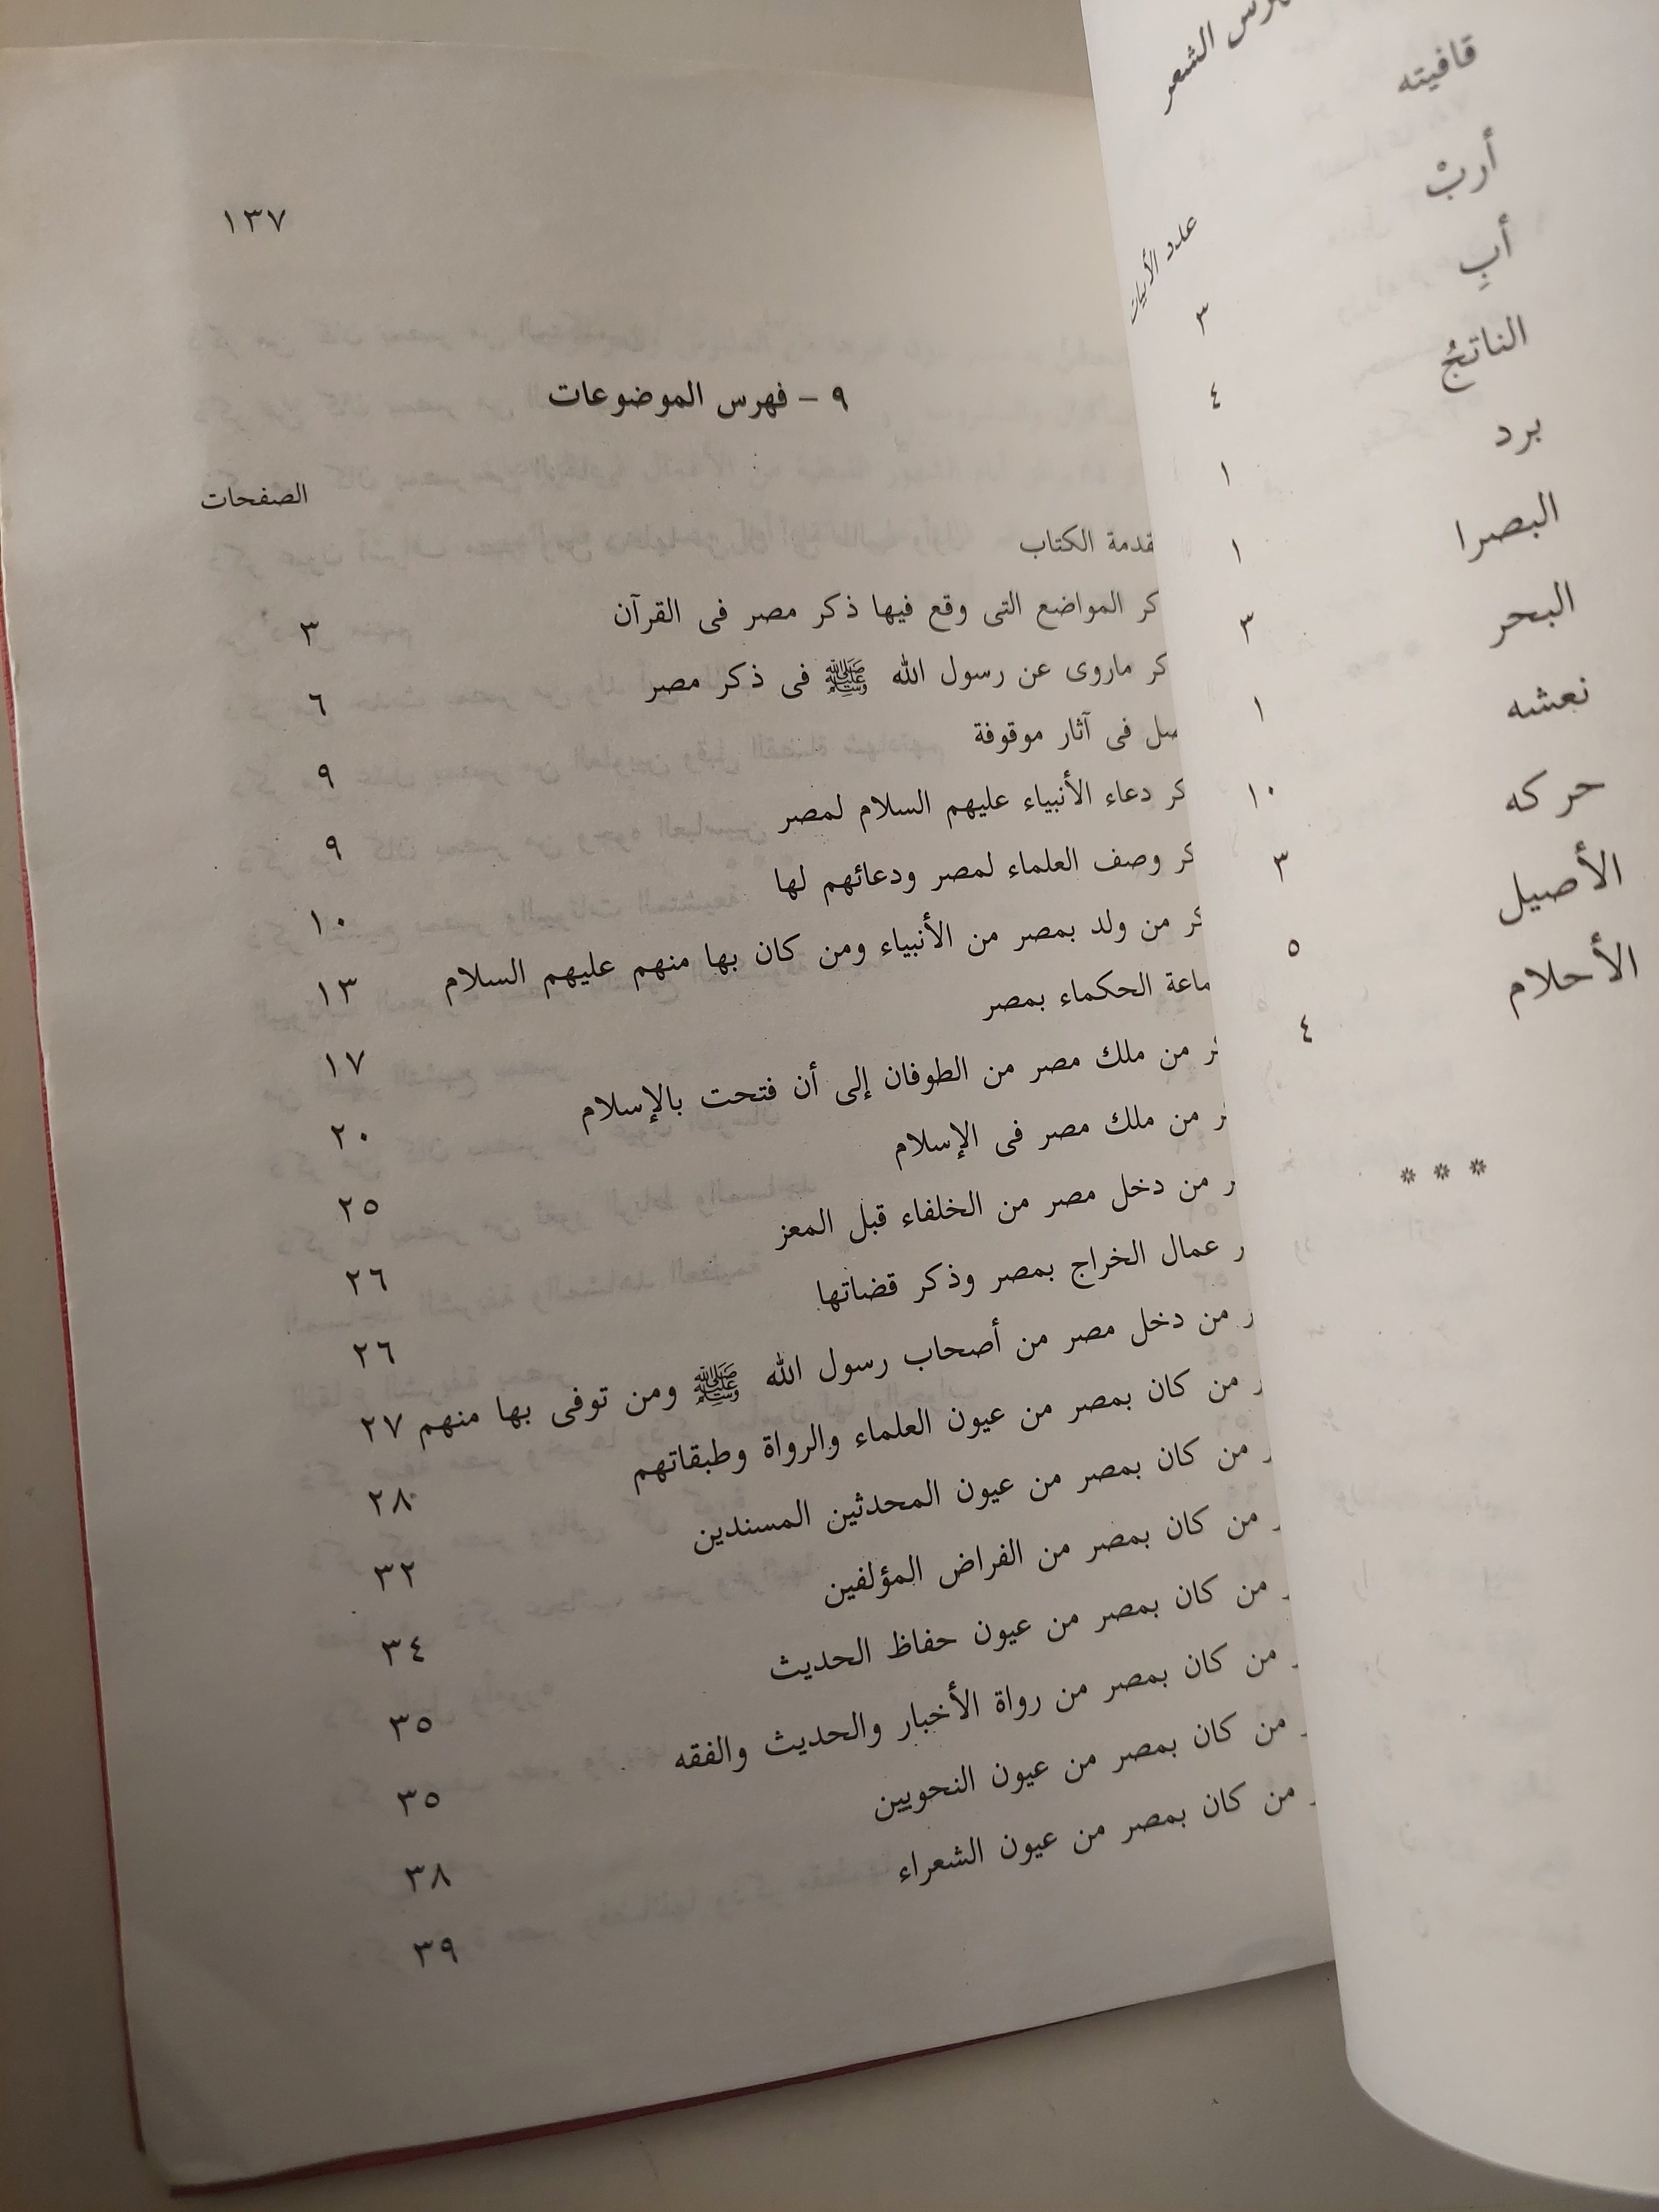 فهرس الشعر
قافيته عدد الأبيات
أربْ ٣
أبِ ٤
الناتجُ ١
برد ١
البصرا ٣
البحر ١
نعشه ١٠
حركه ٣
الأصيل ٥
الأحلام ٤
* * *
١٣٧
٩ – فهرس الموضوعات
الصفحات
قدمة الكتاب
كر المواضع التى وقع فيها ذكر مصر فى القرآن ٣
كر ماروى عن رسول الله ﷺ فى ذكر مصر ٦
صل فى آثار موقوفة ٩
كر دعاء الأنبياء عليهم السلام لمصر ٩
كر وصف العلماء لمصر ودعائهم لها ١٠
كر من ولد بمصر من الأنبياء ومن كان بها منهم عليهم السلام ١٣
ماعة الحكماء بمصر ١٧
ر من ملك مصر من الطوفان إلى أن فتحت بالإسلام ٢٠
ر من ملك مصر فى الإسلام ٢٥
ر من دخل مصر من الخلفاء قبل المعز ٢٦
ر عمال الخراج بمصر وذكر قضاتها ٢٦
ر من دخل مصر من أصحاب رسول الله ﷺ ومن توفى بها منهم ٢٧
ر من كان بمصر من عيون العلماء والرواة وطبقاتهم ٢٨
ر من كان بمصر من عيون المحدثين المسندين ٣٢
ر من كان بمصر من الفراض المؤلفين ٣٤
ر من كان بمصر من عيون حفاظ الحديث ٣٥
ر من كان بمصر من رواة الأخبار والحديث والفقه ٣٥
ر من كان بمصر من عيون النحويين ٣٨
ر من كان بمصر من عيون الشعراء ٣٩